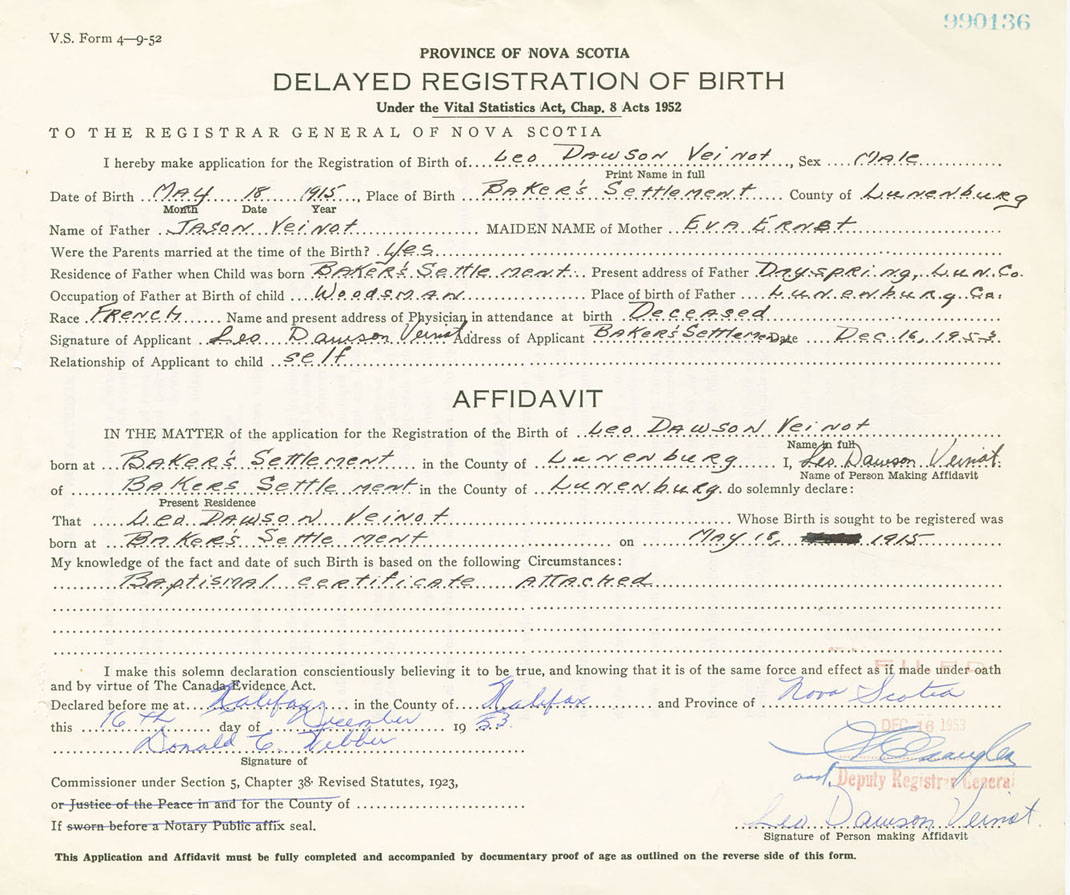 990136
V.S. Form 4—9-52
PROVINCE OF NOVA SCOTIA
DELAYED REGISTRATION OF BIRTH
Under the Vital Statistics Act, Chap. 8 Acts 1952
TO THE REGISTRAR GENERAL OF NOVA SCOTIA
I hereby make application for the Registration of Birth of Leo Dawson Veinot, Sex Male
Print Name in full
Date of Birth May 18 1915, Place of Birth Baker's Settlement County of Lunenburg
Month Date Year
Name of Father Jason Veinot MAIDEN NAME of Mother Eva Ernst
Were the Parents married at the time of the Birth? Yes
Residence of Father when Child was born Baker's Settlement Present address of Father Dayspring, Lun. Co.
Occupation of Father at Birth of child Woodsman Place of birth of Father Lunenburg Co.
Race French Name and present address of Physician in attendance at birth Deceased
Signature of Applicant Leo Dawson Veinot Address of Applicant Baker's Settlement Date Dec. 16, 1953
Relationship of Applicant to child self
AFFIDAVIT
IN THE MATTER of the application for the Registration of the Birth of Leo Dawson Veinot
Name in full
born at Baker's Settlement in the County of Lunenburg I, Leo Dawson Veinot
Name of Person Making Affidavit
of Bakers Settlement in the County of Lunenburg do solemnly declare:
Present Residence
That Leo Dawson Veinot Whose Birth is sought to be registered was
born at Baker's Settlement on May 18, 1915
My knowledge of the fact and date of such Birth is based on the following Circumstances:
Baptismal certificate attached
I make this solemn declaration conscientiously believing it to be true, and knowing that it is of the same force and effect as if made under oath
and by virtue of The Canada Evidence Act.
FILED
Declared before me at Halifax in the County of Halifax and Province of Nova Scotia
this 16th day of December 1953
DEC 16 1953
Donald C.
Signature of
Commissioner under Section 5, Chapter 38 Revised Statutes, 1923,
and Deputy Registrar General
or Justice of the Peace in and for the County of
If sworn before a Notary Public affix seal.
Leo Dawson Veinot
Signature of Person making Affidavit
This Application and Affidavit must be fully completed and accompanied by documentary proof of age as outlined on the reverse side of this form.